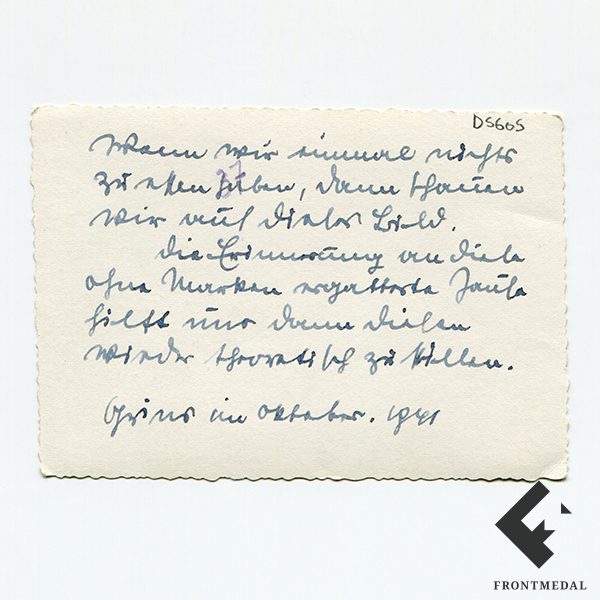 DS605
Wenn wir einmal nichts
zu essen haben, dann schauen
wir auf dieses Bild.
Die Erinnerung an diese
ohne Marken ergatterte Jause
hilft uns dann diesen
wieder theoretisch zu stillen.
im Oktober. 1941
FRONTMEDAL